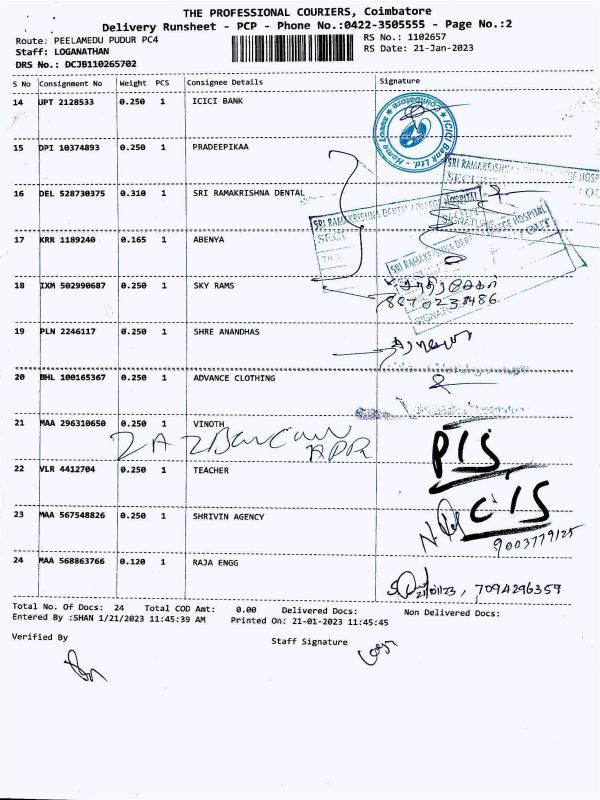 THE PROFESSIONAL COURIERS, Coimbatore
Delivery Runsheet - PCP - Phone No.:0422-3505555 - Page No.:2
Route: PEELAMEDU PUDUR PC4
RS No.: 1102657
Staff: LOGANATHAN
RS Date: 21-Jan-2023
DRS No.: DCJB110265702
S No Consignment No Weight PCS Consignee Details Signature
14 UPT 2128533 0.250 1 ICICI BANK
Coimbatore ICICI Bank Ltd. - Home Loans
15 DPI 10374893 0.250 1 PRADEEPIKAA
SRI RAMAKRISHNA
16 DEL 528730375 0.310 1 SRI RAMAKRISHNA DENTAL
SRI RAMAKRISHNA DENTAL COLLEGE HOSPITAL
17 KRR 1189240 0.165 1 ABENYA
18 IXM 502990687 0.250 1 SKY RAMS
8870238486
19 PLN 2246117 0.250 1 SHRE ANANDHAS
20 BHL 100165367 0.250 1 ADVANCE CLOTHING
21 MAA 296310650 0.250 1 VINOTH
22 VLR 4412704 0.250 1 TEACHER
PIS
23 MAA 567548826 0.250 1 SHRIVIN AGENCY
CIS
9003779125
24 MAA 568863766 0.120 1 RAJA ENGG
21/01/23, 7094296359
Total No. Of Docs: 24 Total COD Amt: 0.00 Delivered Docs: Non Delivered Docs:
Entered By :SHAN 1/21/2023 11:45:39 AM Printed On: 21-01-2023 11:45:45
Verified By Staff Signature